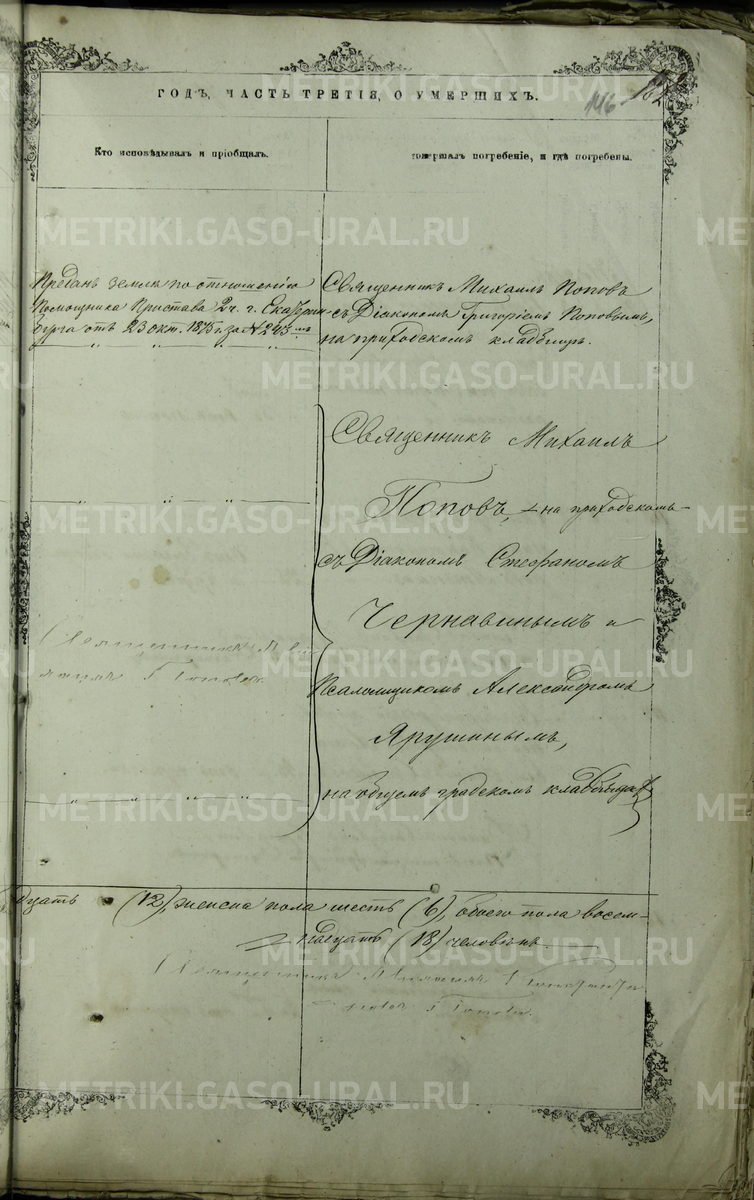 METRIKI.GASO-URAL.RU
ГОДЪ, ЧАСТЬ ТРЕТІЯ, О УМЕРШИХЪ.
146
Кто исповѣдывалъ и пріобщалъ.
совершалъ погребеніе, и гдѣ погребены.
Преданъ землѣ по отношенію
Помощника Пристава 2 ч. г. Екатерин-
бурга отъ 23 окт. 1875 г. за № 243-мъ
Священникъ Михаилъ Поповъ
съ Діакономъ Григоріемъ Поповымъ,
на приходскомъ кладбищѣ.
Священникъ Михаилъ
Поповъ, на приходскомъ
съ Діакономъ Стефаномъ
Чернавинымъ и
Псаломщикомъ Александромъ
Ярушинымъ,
на общемъ градскомъ кладбищѣ
Священникъ Ми
хаилъ Поповъ
дцать (12), женска пола шесть (6), обоего пола восем-
надцать (18) человѣкъ.
Священникъ Михаилъ
Поповъ.